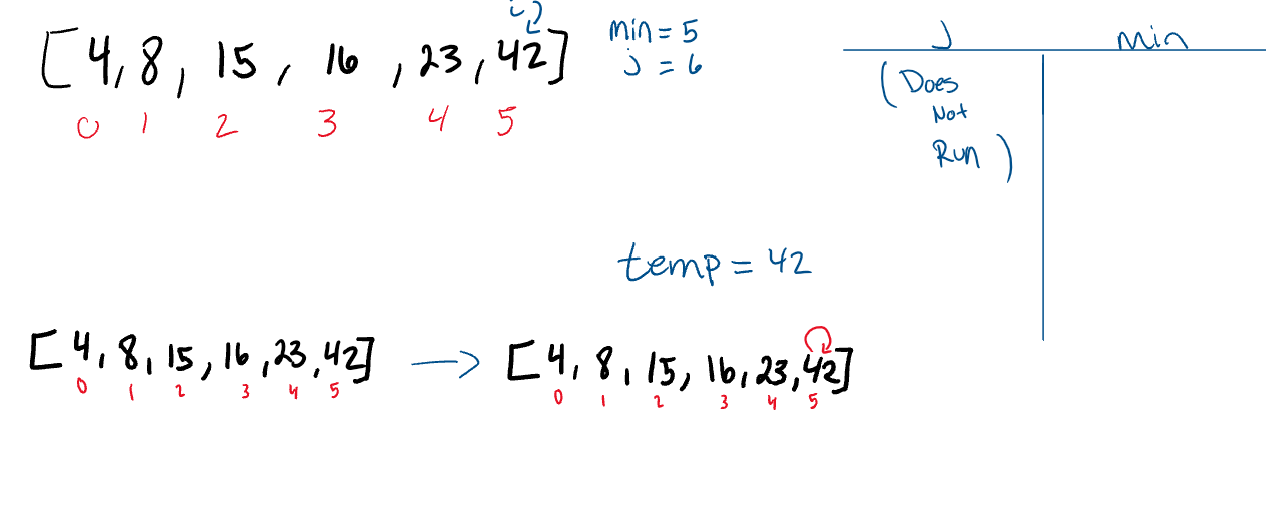 i
[4, 8, 15, 16, 23, 42]
0 1 2 3 4 5
min = 5
j = 6
j min
(Does
Not
Run)
temp = 42
[4, 8, 15, 16, 23, 42] → [4, 8, 15, 16, 23, 42]
0 1 2 3 4 5 0 1 2 3 4 5